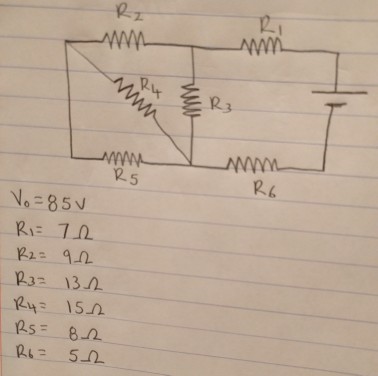 R2
R1
R4
R3
R5
R6
V0 = 85V
R1 = 7Ω
R2 = 9Ω
R3 = 13Ω
R4 = 15Ω
R5 = 8Ω
R6 = 5Ω